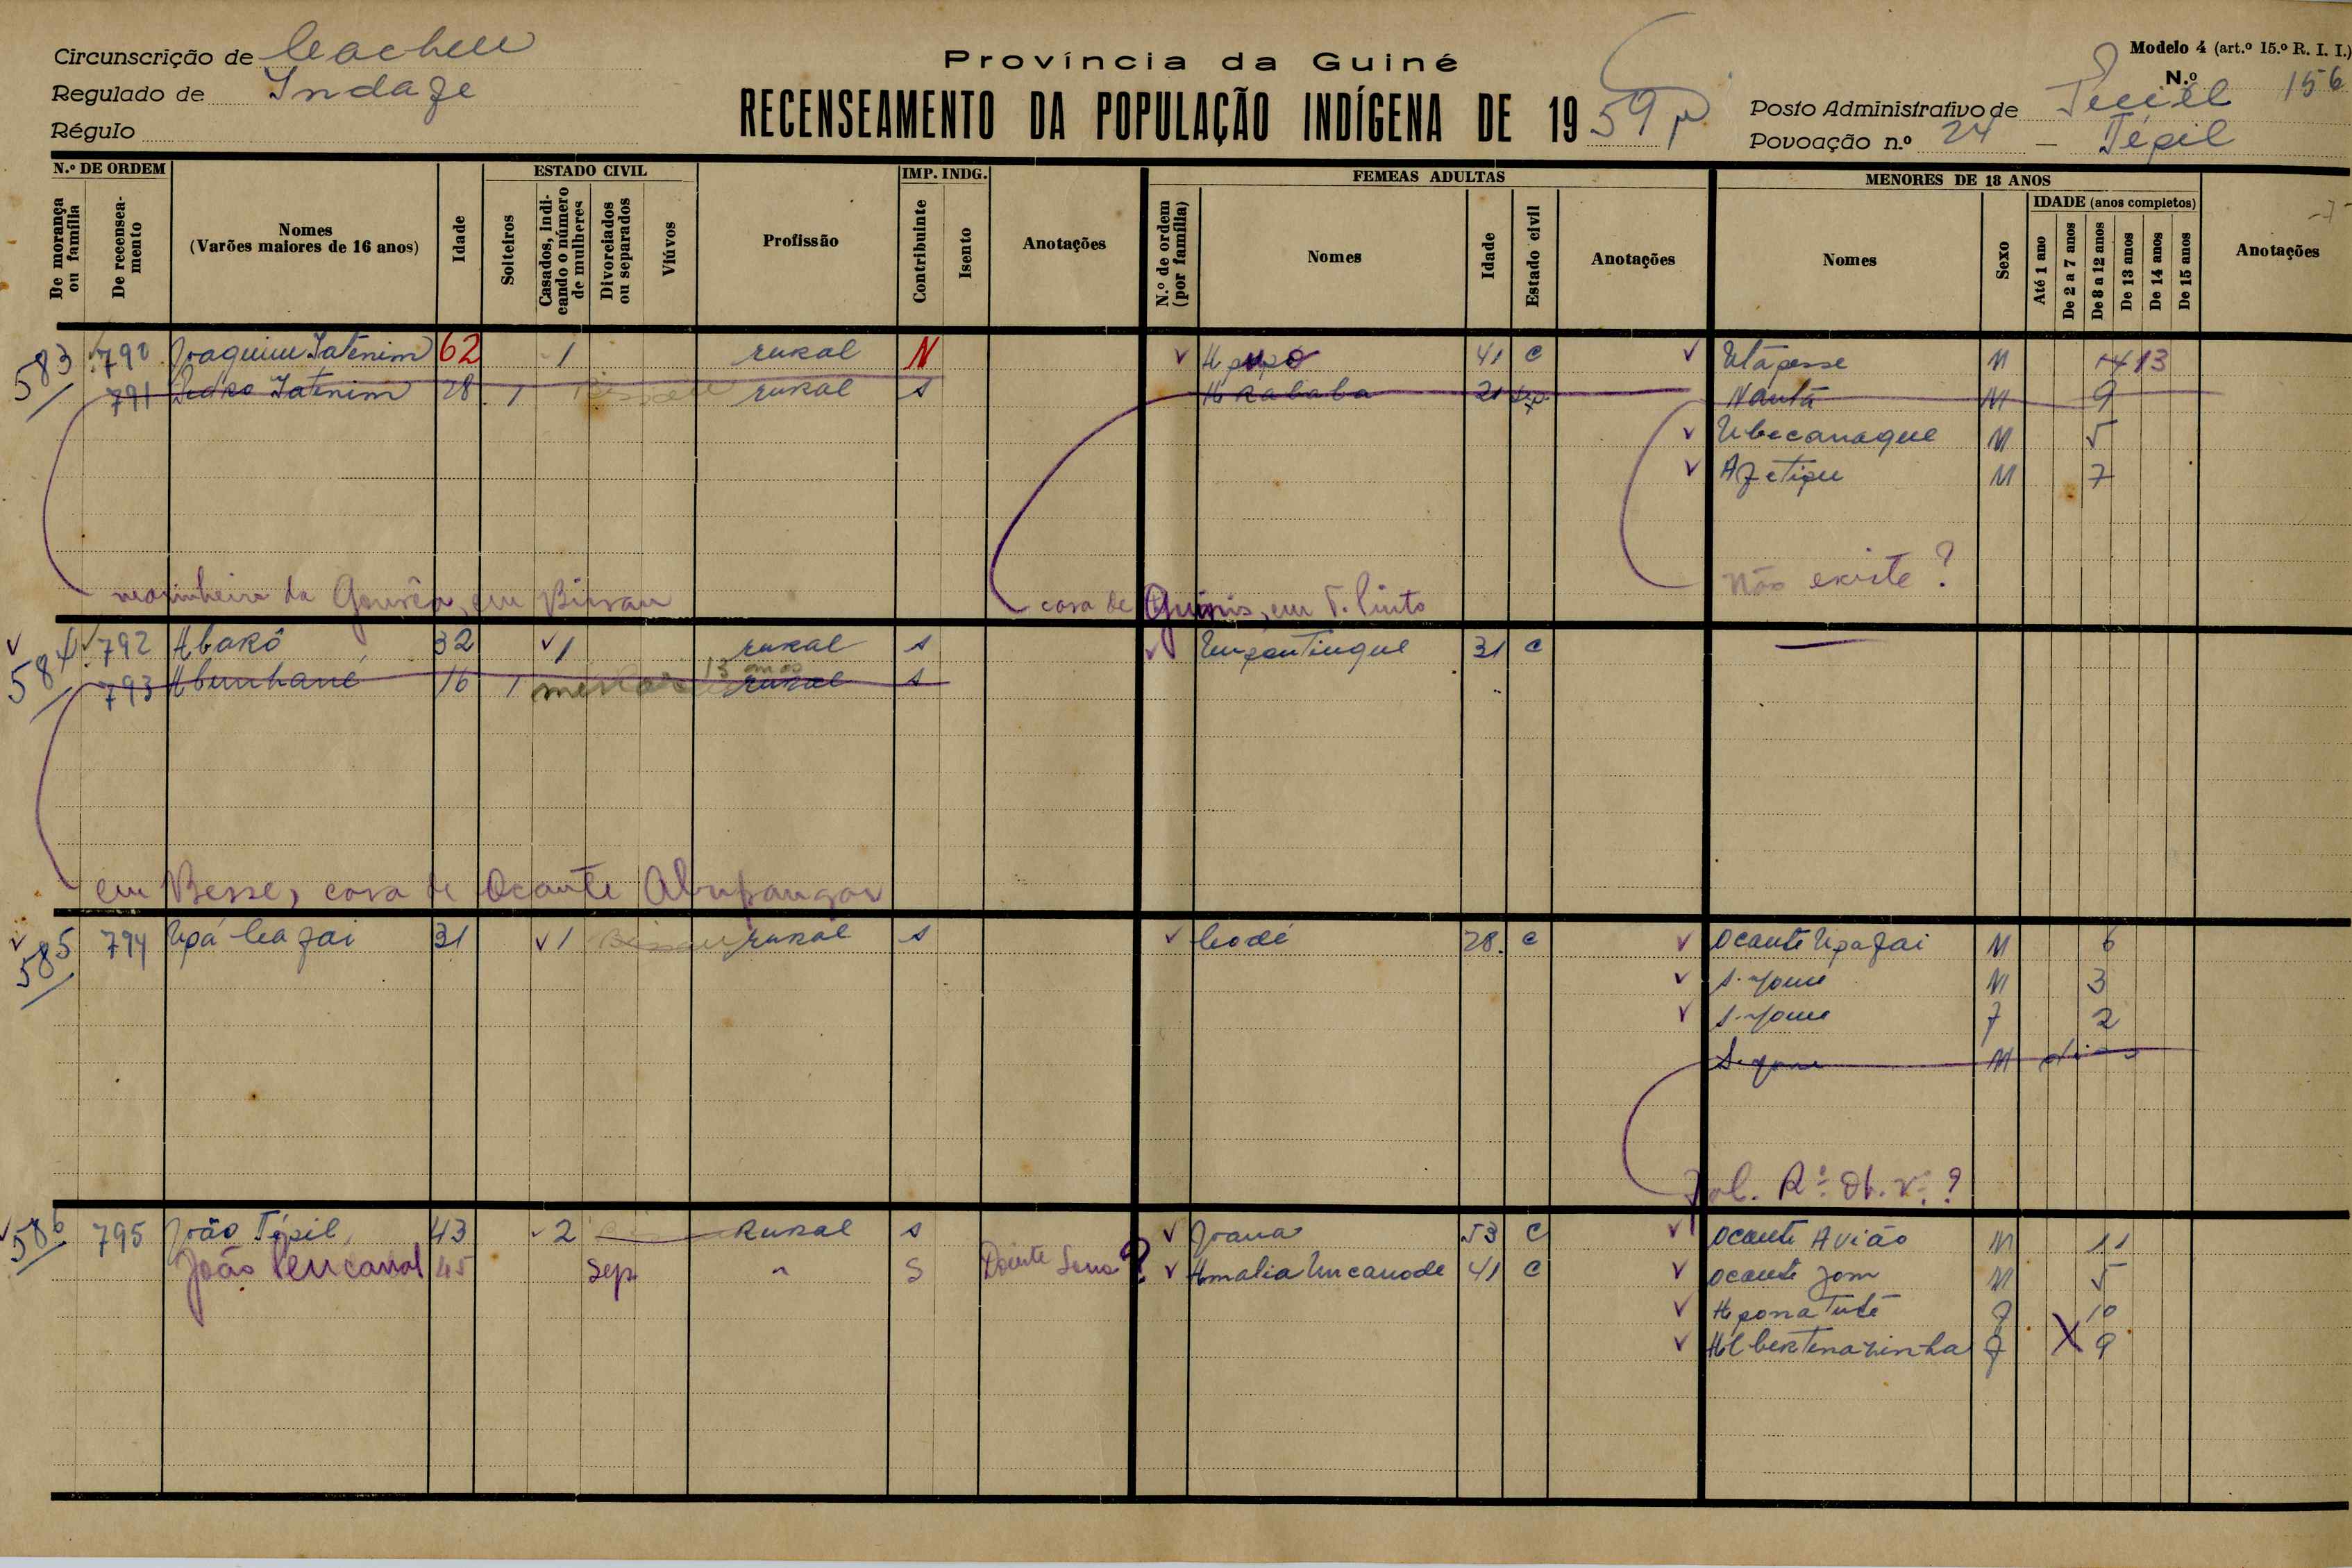 Circunscrição de Cacheu
Regulado de Indafe
Régulo
Província da Guiné
RECENSEAMENTO DA POPULAÇÃO INDÍGENA DE 1959
Modelo 4 (art.º 15.º R. I. I.)
N.º 156
Posto Administrativo de
Povoação n.º 24 — Tépil
N.º DE ORDEM
De morança ou família
De recenseamento
Nomes
(Varões maiores de 16 anos)
Idade
ESTADO CIVIL
Solteiros
Casados, indicando o número de mulheres
Divorciados ou separados
Viúvos
Profissão
IMP. INDG.
Contribuinte
Isento
Anotações
FEMEAS ADULTAS
N.º de ordem (por família)
Nomes
Idade
Estado civil
Anotações
MENORES DE 18 ANOS
Nomes
Sexo
IDADE (anos completos)
Até 1 ano
De 2 a 7 anos
De 8 a 12 anos
De 13 anos
De 14 anos
De 15 anos
Anotações
-7-
583 790 Joaquim Iatenim 62 1 rural N Apupó 41 C Utapesse M 14 13
791 Pedro Iatenim 28 1 Bissau rural s Akababa 21 Sep. Nantá M 9
Ubecanaque M 5
Afetipu M 7
Não existe?
marinheiro da Gouvêa, em Bissau casa de Quinis, em T. Pinto
584 792 Abakô 32 1 rural s Umpontinque 31 C —
793 Abunhané 16 1 menor 13 anos rural s
em Besse, casa de Ocante Abupangar
585 794 Upá Cafai 31 1 Bissau rural s Codé 28 C Ocante Upafai M 6
s. nome M 3
s. nome F 2
S. nome M dias
Fal. Rº. Ob. V.?
586 795 João Tépil 43 2 Rural s Joana 53 C Ocante Avião M 11
João Pencanal 45 Sep. " S Doente Sono? Amalia Uncanode 41 C Ocante Jom M 5
Apona Tuté F 10
Albertenazinha F X 9